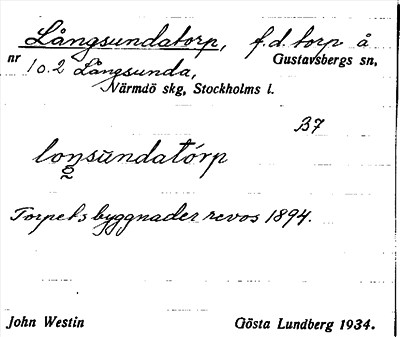 Långsundatorp, f.d. torp å
nr 1 o. 2 Långsunda, Gustavsbergs sn,
Värmdö skg, Stockholms l.
B7
loŋsùndatórp
Torpets byggnader revos 1894.
John Westin Gösta Lundberg 1934.